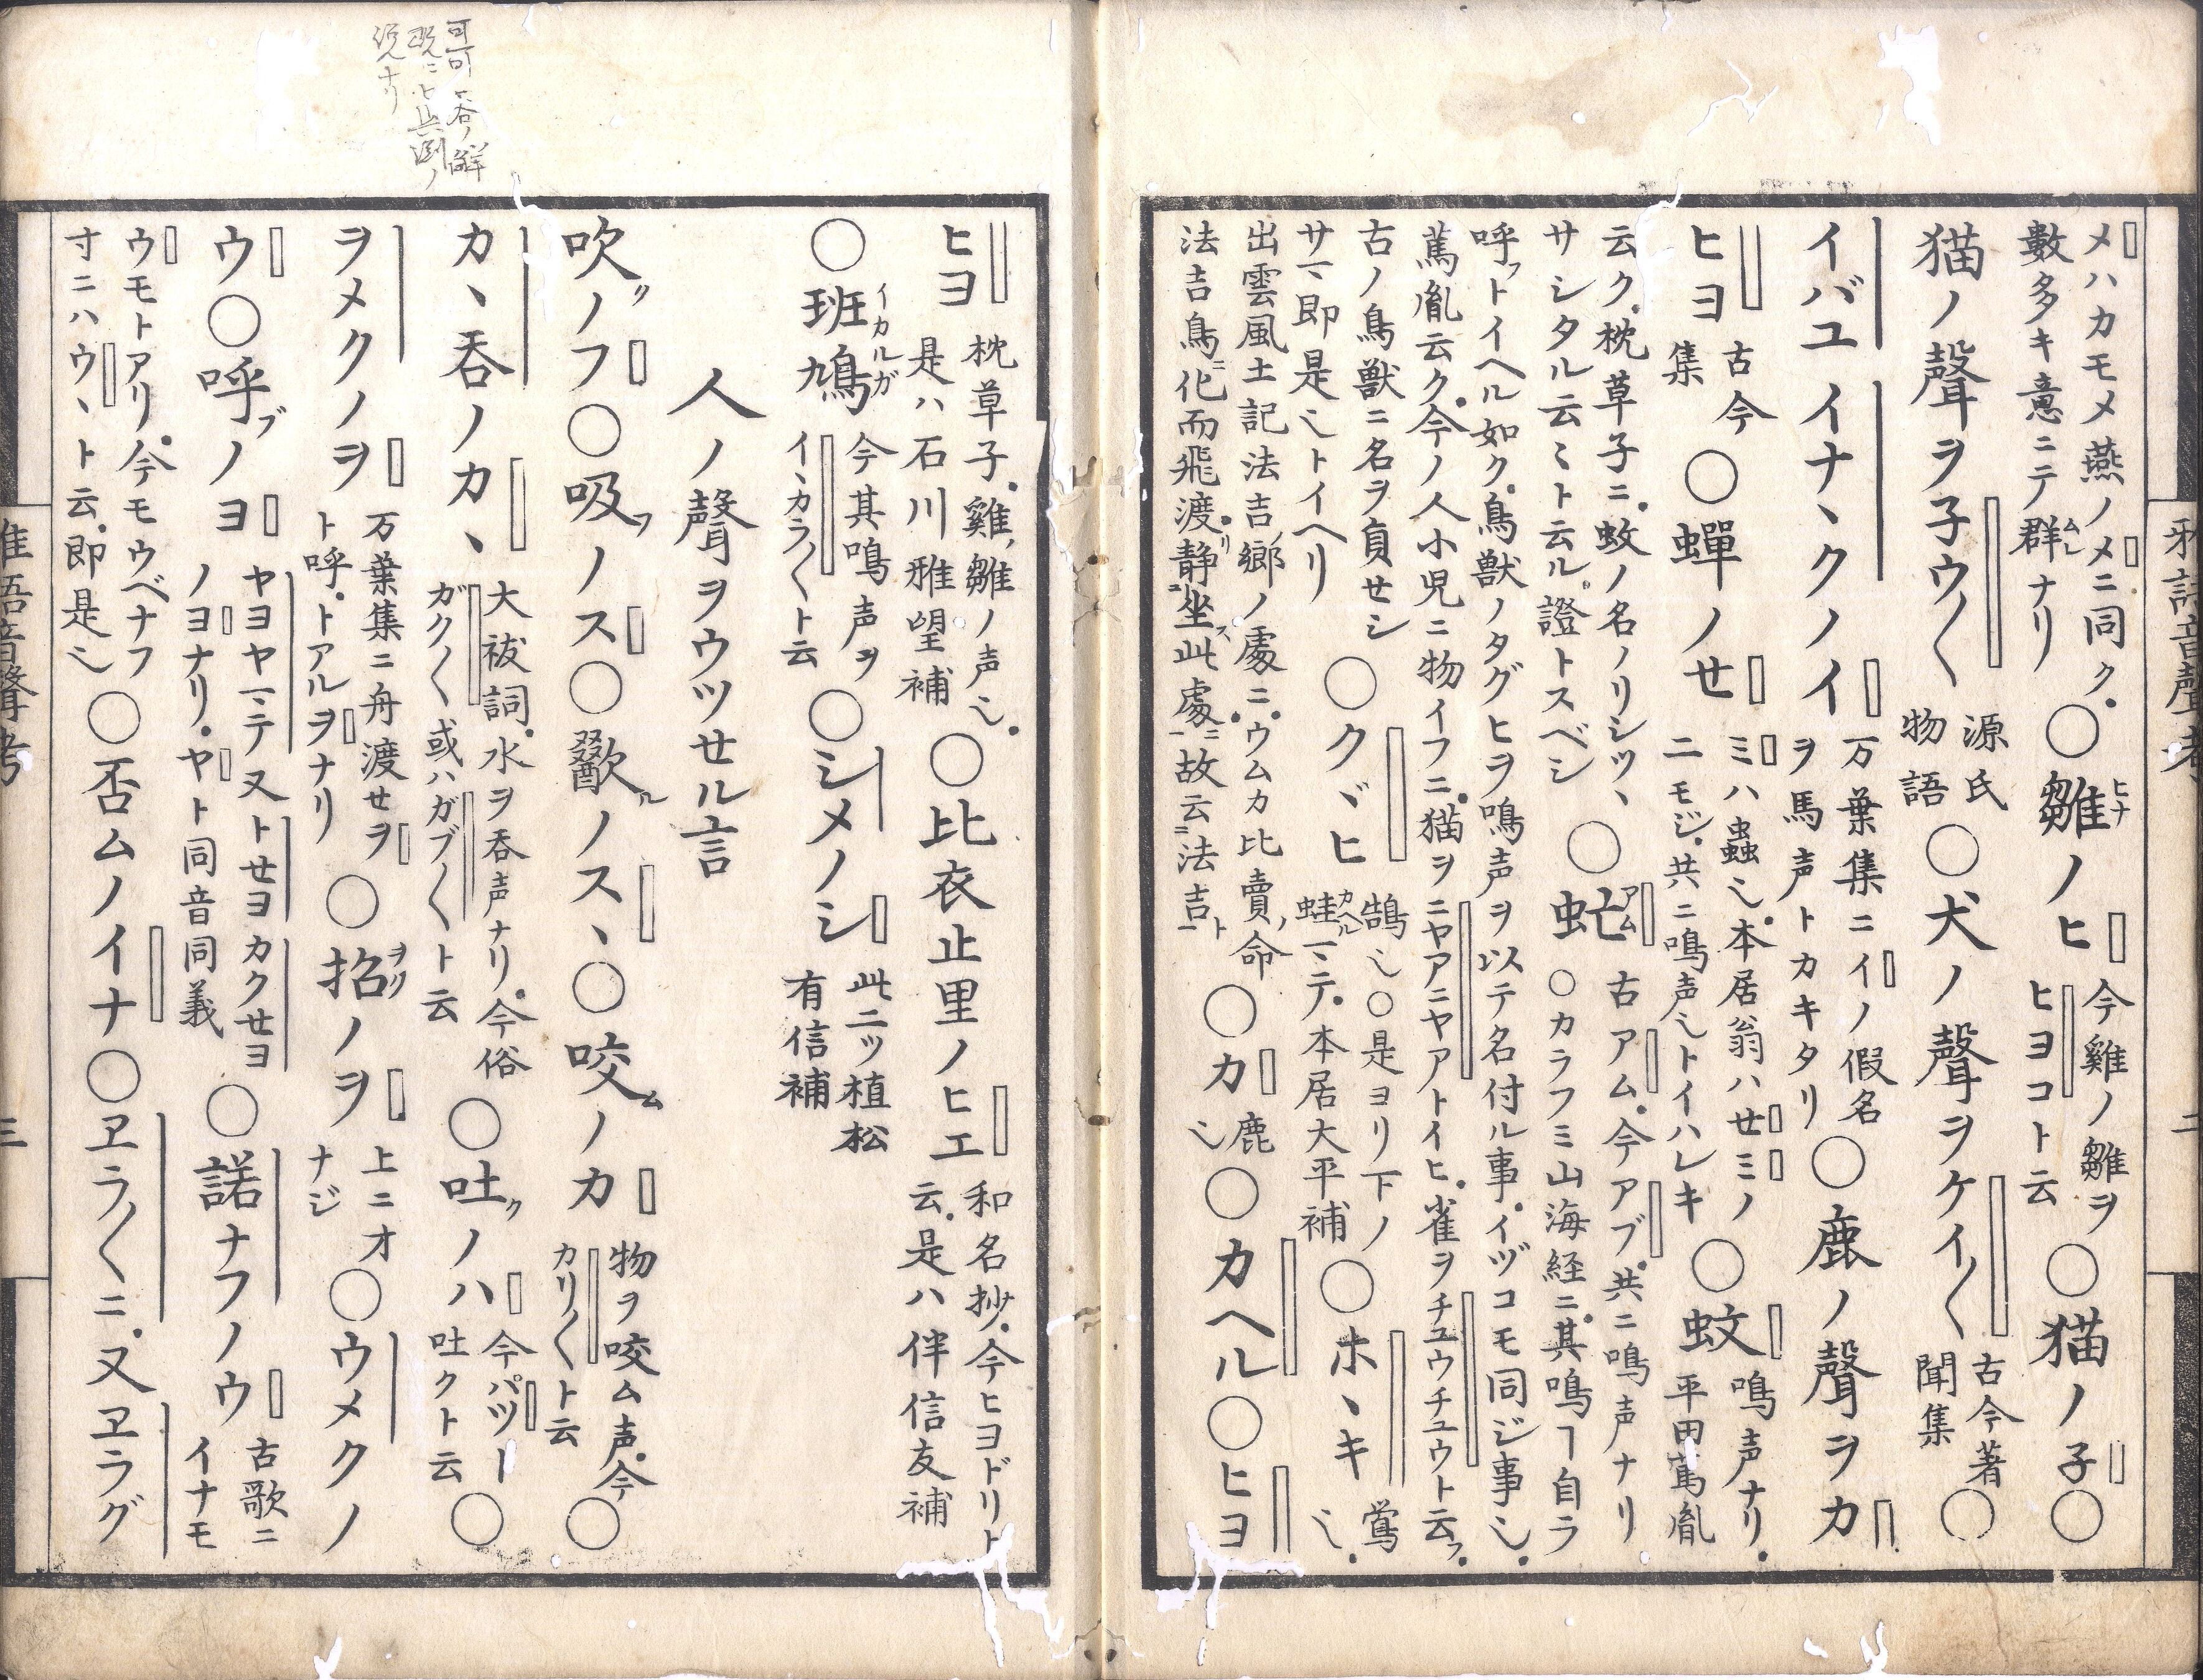 メハカモメ燕ノメニ同ク。
數多キ意ニテ群ナリ
ムレ
○雛ノヒ
ヒナ
今雞ノ雛ヲ
ヒヨコト云
○猫ノ子○
猫ノ聲ヲ子ウ〱
源氏
物語
○犬ノ聲ヲケイ〱
古今著
聞集
○
イバユイナヽクノイ
万葉集ニイノ假名
ヲ馬声トカキタリ
○鹿ノ聲ヲカ
ヒヨ
古今
集
○蟬ノせ
ミハ蟲也。本居翁ハせミノ
ニモジ。共ニ鳴声也トイハレキ
○蚊
鳴声ナリ。
平田篤胤
云ク。枕草子ニ。蚊ノ名ノリシツヽ
サシタル云〻ト云ル。證トスベシ
○虻
アム
古アム。今アブ。共ニ鳴声ナリ
○カラフミ山海経ニ。其鳴ヿ自ラ
呼フトイヘル如ク。鳥獸ノタグヒヲ鳴声ヲ以テ名付ル事。イヅコモ同ジ事也。
篤胤云ク。今ノ人小児ニ物イフニ。猫ヲニヤアニヤアトイヒ。雀ヲチユウチユウト云フ。
古ノ鳥獸ニ名ヲ負せシ
サマ即是也トイヘリ
○クヾヒ
鵠也○是ヨリ下ノ
蛙マデ。本居大平補
カヘル
○ホヽキ
鶯
也。
出雲風土記法吉ノ郷ノ處ニ。ウムカ比賣ノ命
法吉鳥ニ化而飛渡リ。静坐ス此處ニ。故云法吉ト
○カ
鹿
也
○カヘル○ヒヨ
ヒヨ
枕草子。雞ノ雛ノ声也。
是ハ石川雅望補
○比衣止里ノヒエ
和名抄。今ヒヨドリト
云。是ハ伴信友補
○班鳩
イカルガ
今其鳴声ヲ
イヽカラ〱ト云
○シメノシ
此二ツ植松
有信補
人ノ聲ヲウツせル言
吹クノフ○吸フノス○歠ルノスヽ○咬ムノカ
物ヲ咬ム声。今
カリ〱ト云
○
カヽ呑ノカヽ
大祓詞。水ヲ呑声ナリ。今俗
ガク〱或ハガブ〱ト云
○吐クノハ
今パツー
吐クト云
○
ヲメクノヲ
万葉集ニ舟渡せヲ
ト呼。トアルヲナリ
○招ノヲ
ヲク
上ニオ
ナジ
○ウメクノ
ウ○呼ブノヨ
ヤヨヤマテ又トせヨカクせヨ
ノヨナリ。ヤト同音同義
○諾ナフノウ
古歌ニ
イナモ
ウモトアリ。今モウベナフ
寸ニハウヽト云。即是也
○否ムノイナ○ヱラ〱ニ。又ヱラグ
雅語音聲考
二
雅語音聲考
三